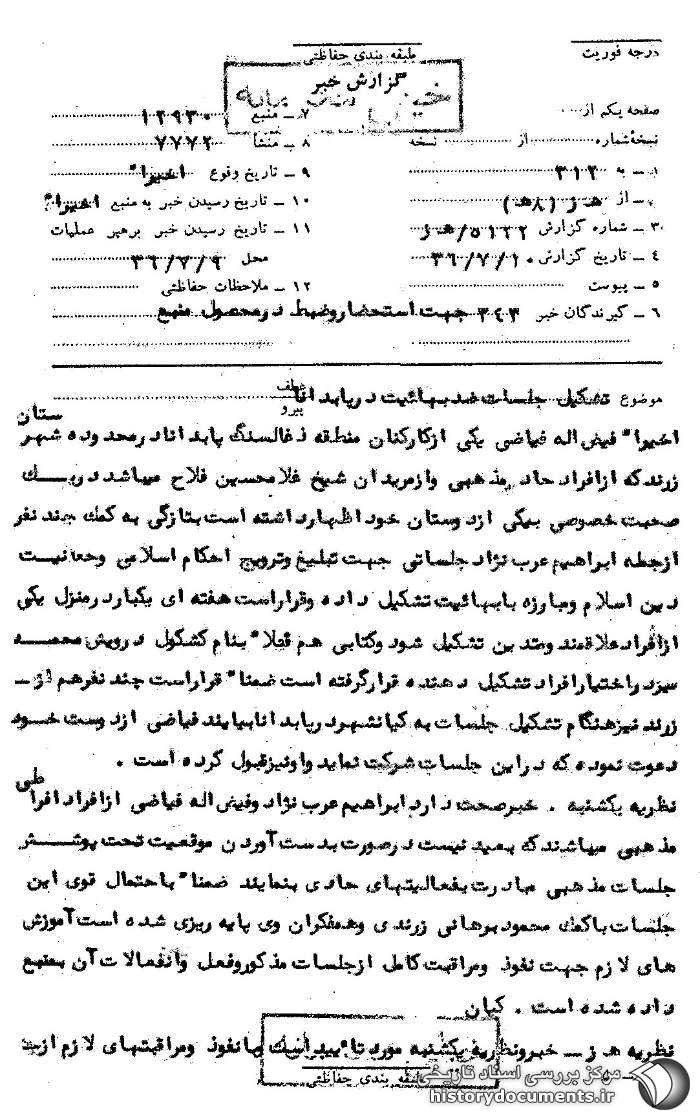 درجه فوریت
طبقه بندی حفاظتی
گزارش خبر
صفحه یکم از
نسخه شماره از نسخه
۱ – به ۳۱۲
۲ – از هـ ز (۸ هـ)
۳ – شماره گزارش ۵۱۲۲/هـ ز
۴ – تاریخ گزارش ۳۶/۷/۱۰
۵ – پیوست
۶ – گیرندگان خبر ۳۴۳ جهت استحضار و ضبط در محصول منبع
۷ – منبع ۱۲۹۳۰
۸ – منشأ ۷۷۷۲
۹ – تاریخ وقوع اخیرا"
۱۰ – تاریخ رسیدن خبر به منبع اخیرا"
۱۱ – تاریخ رسیدن خبر برهبر عملیات
محل ۳۶/۷/۹
۱۲ – ملاحظات حفاظتی
موضوع تشکیل جلسات ضد بهائیت در پابدانا
عطف
پیرو
ستان
اخیرا" فیض اله فیاضی یکی از کارکنان منطقه ذغالسنگ پابدانا در محدوده شهر
زرند که از افراد حاد مذهبی و از مریدان شیخ غلامحسین فلاح میباشد در یک
صحبت خصوصی بیکی از دوستان خود اظهار داشته است بتازگی به کمک چند نفر
از جمله ابراهیم عرب نژاد جلساتی جهت تبلیغ و ترویج احکام اسلامی و حقانیت
دین اسلام و مبارزه با بهائیت تشکیل داده و قرار است هفته ای یکبار در منزل یکی
از افراد علاقمند و متدین تشکیل شود و کتابی هم قبلا" بنام کشکول درویش محمد
در اختیار افراد تشکیل دهنده قرار گرفته است ضمنا" قرار است چند نفر هم از –
زرند نیز هنگام تشکیل جلسات به کیانشهر در پابدانا بیایند فیاضی از دوست خود
دعوت نموده که در این جلسات شرکت نماید و او نیز قبول کرده است .
نظریه یکشنبه . خبر صحت دارد ابراهیم عرب نژاد و فیض اله فیاضی از افراد افراطی
مذهبی میباشند که بعید نیست در صورت بدست آوردن موقعیت تحت پوشش
جلسات مذهبی مبادرت بفعالیتهای حادی بنمایند ضمنا" با احتمال قوی این
جلسات با کمک محمود برهانی زرندی و همفکران وی پایه ریزی شده است آموزش
های لازم جهت نفوذ و مراقبت کامل از جلسات مذکور و فعل و انفعالات آن بمنبع
داده شده است . کیان
نظریه هـ ز – خبر و نظریه یکشنبه مورد تائید است نفوذ و مراقبتهای لازم از
طبقه بندی حفاظتی
مرکز بررسی اسناد تاریخی
historydocuments.ir